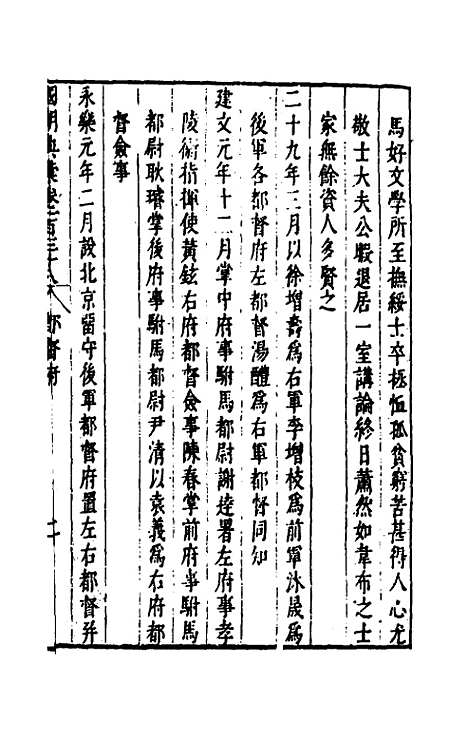 馬好文學所至撫綏士卒拯恤孤貧窮苦甚得人心尤
敬士大夫公暇退居一室講論終日蕭然如韋布之士
家無餘資人多賢之
二十九年三月以徐增壽為右軍李增枝為前軍沐晟為
後軍各都督府左都督湯醴為右軍都督同知
建文元年十二月掌中府事駙馬都尉謝達署左府事孝
陵衛指揮使黃鉉右府都督僉事陳春掌前府事駙馬
都尉耿璿掌後府事駙馬都尉尹清以袁義為右府都
督僉事
永樂元年二月設北京留守後軍都督府置左右都督幷
國朝典彙卷一百三十八 都督府 二